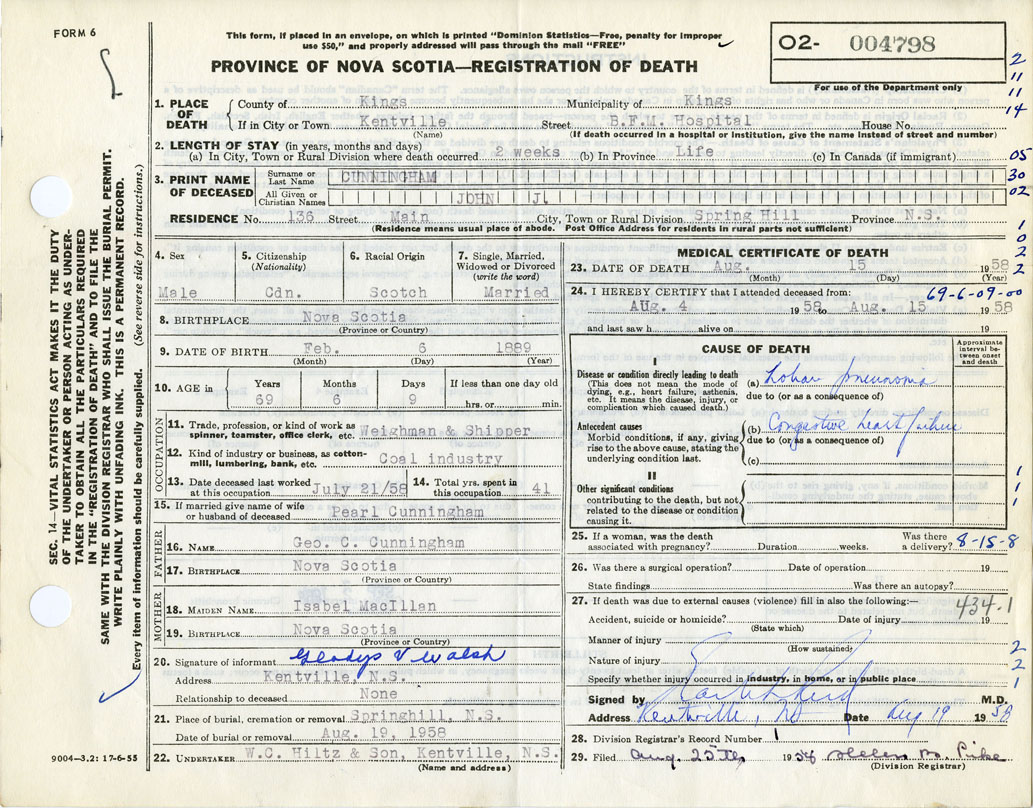 FORM 6
This form, if placed in an envelope, on which is printed "Dominion Statistics—Free, penalty for improper
use $50," and properly addressed will pass through the mail "FREE"
PROVINCE OF NOVA SCOTIA—REGISTRATION OF DEATH
O2- 004798
For use of the Department only
2
11
11
14
05
30
02
1
0
2
2
SEC. 14—VITAL STATISTICS ACT MAKES IT THE DUTY
OF THE UNDERTAKER OR PERSON ACTING AS UNDER-
TAKER TO OBTAIN ALL THE PARTICULARS REQUIRED
IN THE "REGISTRATION OF DEATH" AND TO FILE THE
SAME WITH THE DIVISION REGISTRAR WHO SHALL ISSUE THE BURIAL PERMIT.
WRITE PLAINLY WITH UNFADING INK. THIS IS A PERMANENT RECORD.
Every item of information should be carefully supplied. (See reverse side for instructions.)
1. PLACE OF DEATH
County of Kings Municipality of Kings
If in City or Town Kentville Street B.F.M. Hospital House No.
(Name) (If death occurred in a hospital or institution, give the name instead of street and number)
2. LENGTH OF STAY (in years, months and days)
(a) In City, Town or Rural Division where death occurred 2 weeks (b) In Province Life (c) In Canada (if immigrant)
3. PRINT NAME OF DECEASED
Surname or Last Name CUNNINGHAM
All Given or Christian Names JOHN J.
RESIDENCE No. 136 Street Main City, Town or Rural Division Spring Hill Province N.S.
(Residence means usual place of abode. Post Office Address for residents in rural parts not sufficient)
4. Sex
Male
5. Citizenship
(Nationality)
Cdn.
6. Racial Origin
Scotch
7. Single, Married,
Widowed or Divorced
(write the word)
Married
8. BIRTHPLACE Nova Scotia
(Province or Country)
9. DATE OF BIRTH Feb. 6 1889
(Month) (Day) (Year)
10. AGE in
Years Months Days If less than one day old
69 6 9 hrs. or min.
OCCUPATION
11. Trade, profession, or kind of work as
spinner, teamster, office clerk, etc. Weighman & Shipper
12. Kind of industry or business, as cotton-
mill, lumbering, bank, etc. Coal industry
13. Date deceased last worked
at this occupation July 21/58
14. Total yrs. spent in
this occupation 41
15. If married give name of wife
or husband of deceased Pearl Cunningham
FATHER
16. NAME Geo. C. Cunningham
17. BIRTHPLACE Nova Scotia
(Province or Country)
MOTHER
18. MAIDEN NAME Isabel MacIllan
19. BIRTHPLACE Nova Scotia
(Province or Country)
20. Signature of informant Gladys V Walsh
Address Kentville, N.S.
Relationship to deceased None
21. Place of burial, cremation or removal Springhill, N.S.
Date of burial or removal Aug. 19, 1958
22. UNDERTAKER W.C. Hiltz & Son, Kentville, N.S.
(Name and address)
9004—3.2: 17-6-55
MEDICAL CERTIFICATE OF DEATH
23. DATE OF DEATH Aug. 15 1958
(Month) (Day) (Year)
24. I HEREBY CERTIFY that I attended deceased from: 69-6-09-00
AUg. 4 1958 to Aug. 15 1958
and last saw h alive on 19
CAUSE OF DEATH
Approximate
interval be-
tween onset
and death
I
Disease or condition directly leading to death
(This does not mean the mode of
dying, e.g., heart failure, asthenia,
etc. It means the disease, injury, or
complication which caused death.)
(a) Lobar pneumonia
due to (or as a consequence of)
Antecedent causes
Morbid conditions, if any, giving
rise to the above cause, stating the
underlying condition last.
(b) Congestive heart failure
due to (or as a consequence of)
(c)
II
Other significant conditions
contributing to the death, but not
related to the disease or condition
causing it.
1
1
1
25. If a woman, was the death
associated with pregnancy? Duration weeks. Was there
a delivery? 8-15-8
26. Was there a surgical operation? Date of operation 19
State findings Was there an autopsy?
27. If death was due to external causes (violence) fill in also the following:— 434-1
Accident, suicide or homicide? Date of injury 19
(State which)
Manner of injury
(How sustained)
Nature of injury
Specify whether injury occurred in industry, in home, or in public place
2
2
1
Signed by M.D.
Address Kentville, NS Date Aug 19 1958
28. Division Registrar's Record Number 1
29. Filed Aug. 25th 1958 Helen
(Division Registrar)